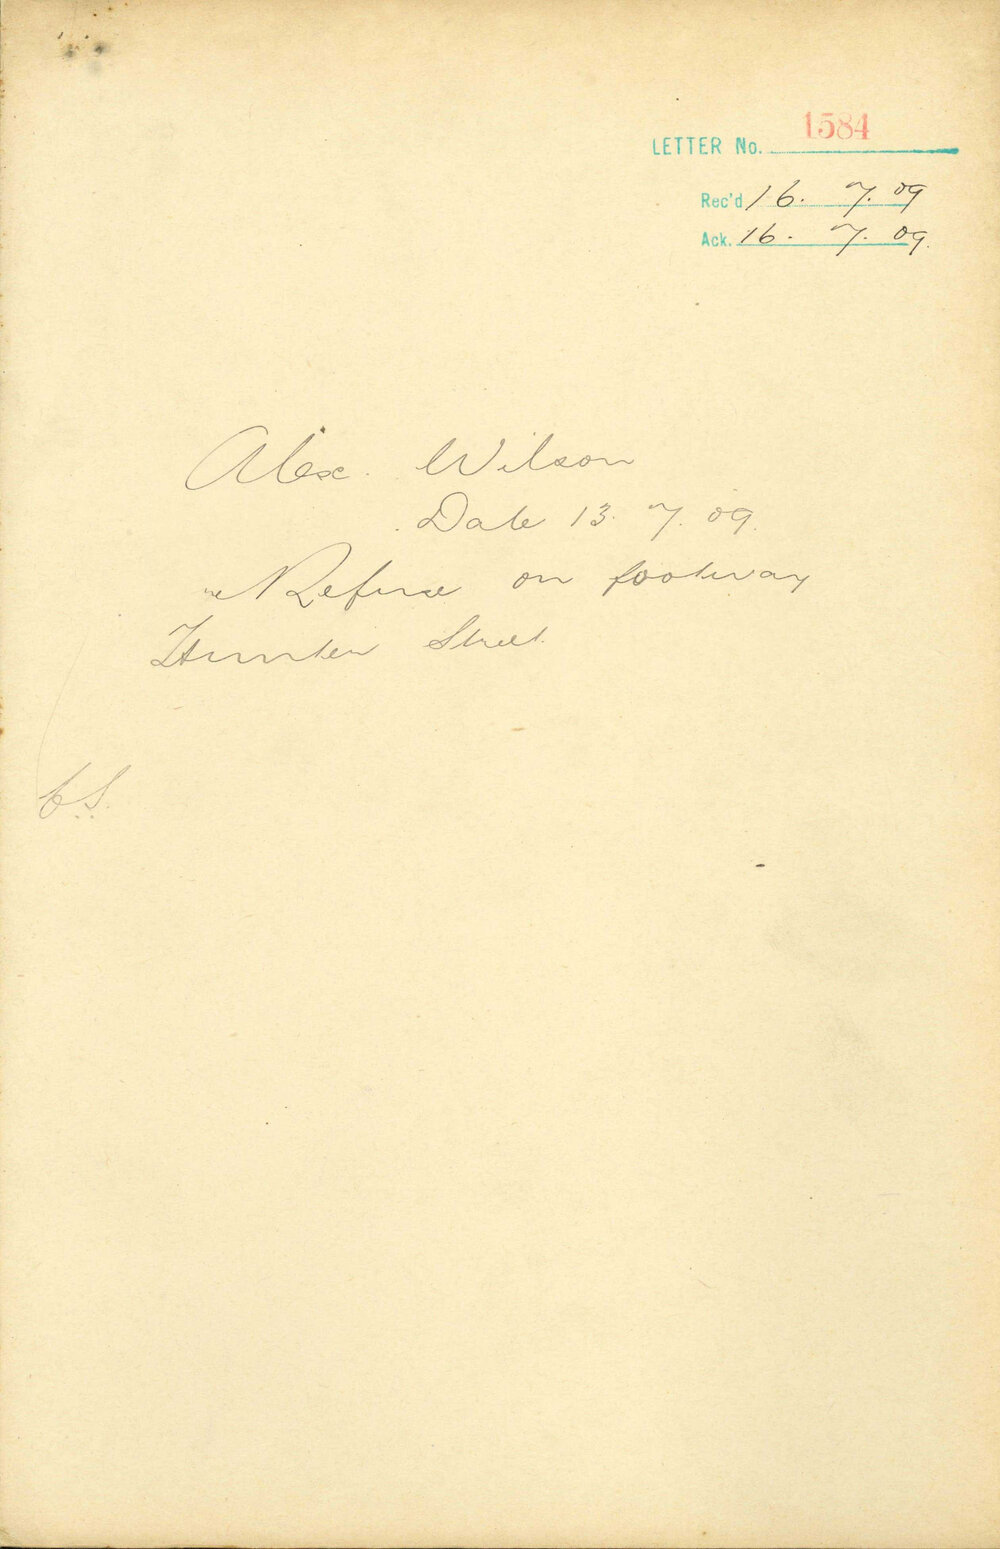 LETTER No. 1584
Rec'd 16. 7. 09
Ack. 16. 7. 09.
Alex. Wilson
Date 13. 7. 09.
re Refuse on footway
Hunter Street.
C.S.